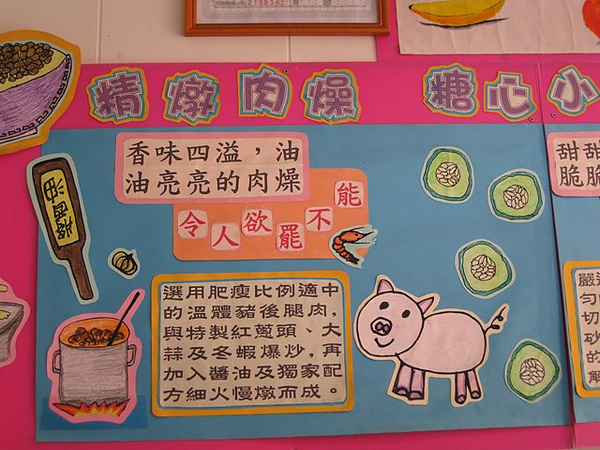 精燉肉燥
糖心小
香味四溢，油
油亮亮的肉燥
令人欲罷不能
選用肥瘦比例適中
的溫體豬後腿肉，
與特製紅蔥頭、大
蒜及冬蝦爆炒，再
加入醬油及獨家配
方細火慢燉而成。
甜甜
脆脆
嚴
勻
切
砂
的
解